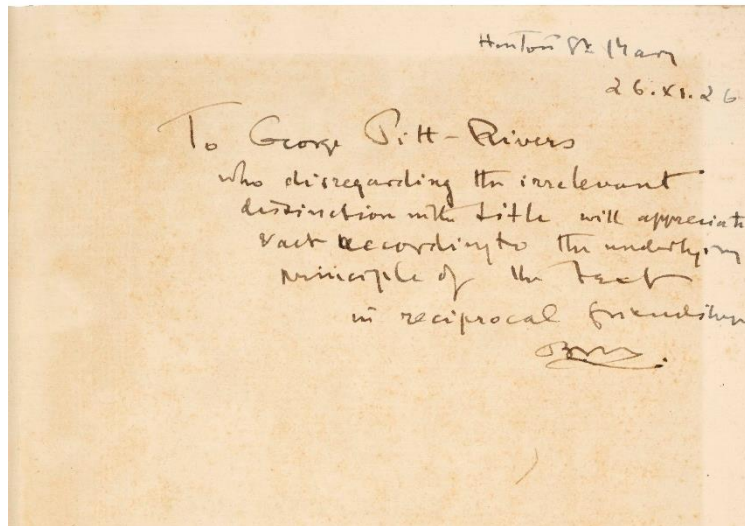 Hinton St. Mary
26.XI.26
To George Pitt-Rivers
who disregarding the irrelevant
distinction in the title will appreciat
according to the underlying
principle of the text
in reciprocal friendship